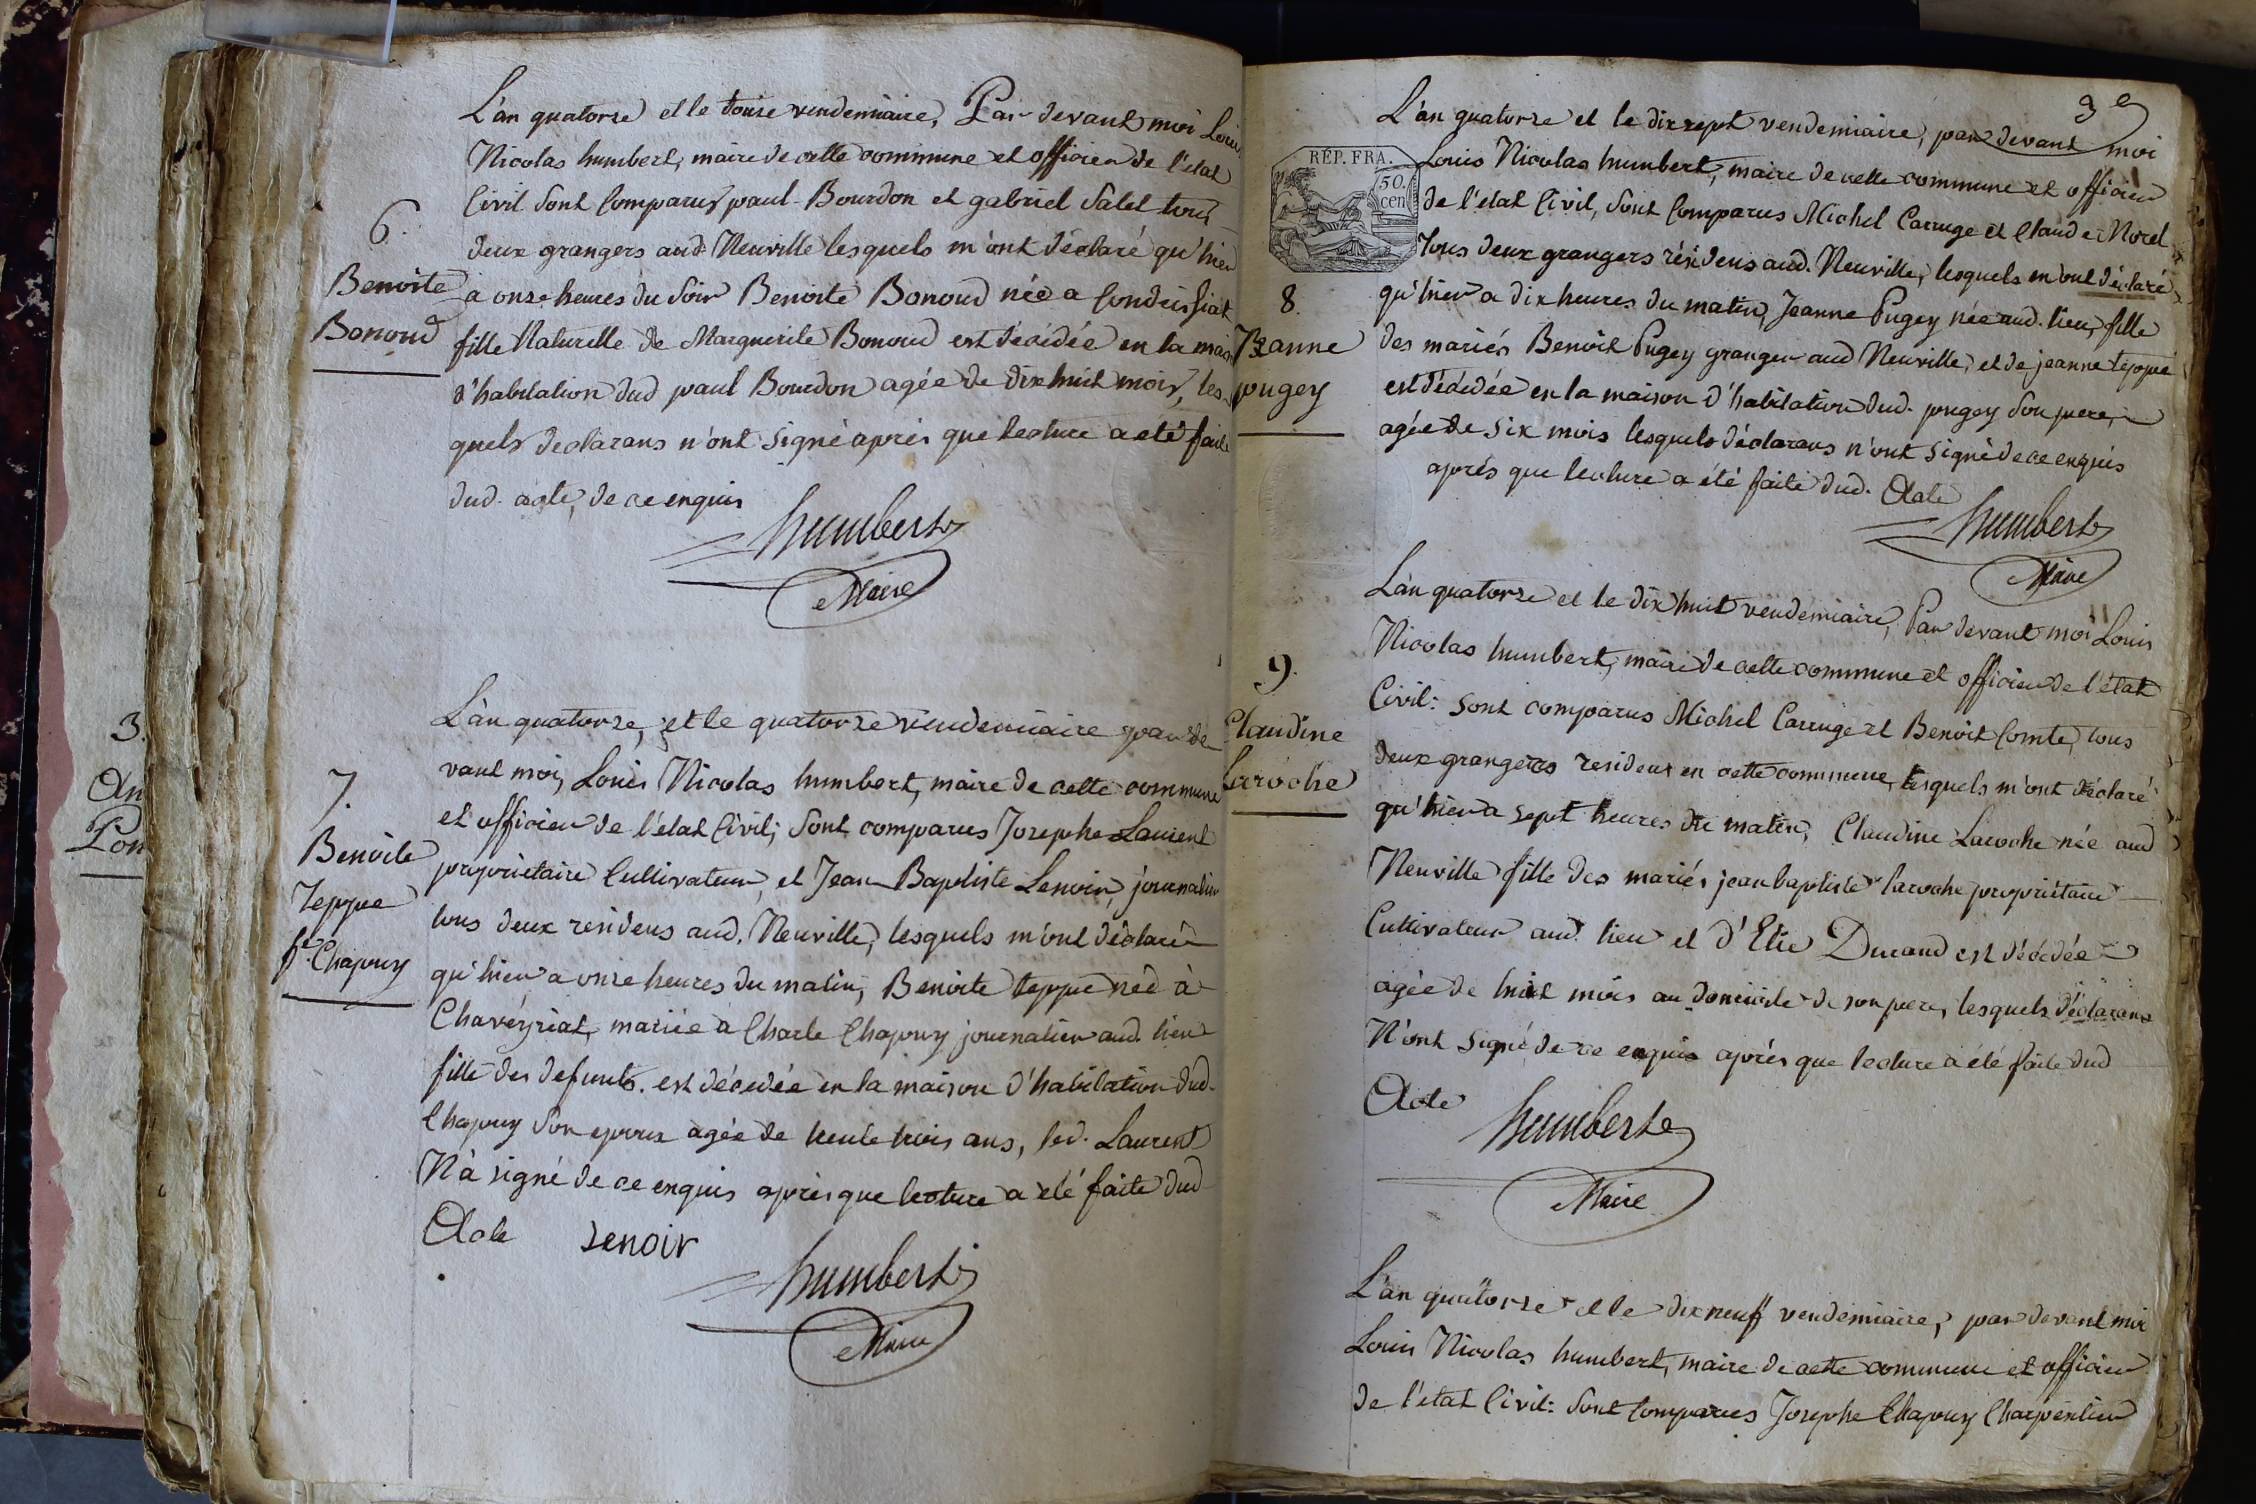 L'an quatorse et le douse vendemiaire, Par devant moi Louis
Nicolas humbert, maire de cette commune et officier de l'état
Civil Sont Comparus paul Bourdon et gabriel Salet tous
deux grangers aud. Neuville lesquels m'ont déclaré qu'hier
6.
Benoite
Bonoud
a onse heures du Soir Benoite Bonoud née a Condeissiat
fille Naturelle de Marguerite Bonoud est décédée en la maison
d'habitation dud paul Bourdon agée de dix huit mois, les-
quels declarans n'ont signé aprés que lecture a eté faite
dud. acte, de ce enquis
humbert
Maire
L'an quatorse, et le quatorse vendemiaire par de-
vant moi, Louis Nicolas humbert, maire de cette commune
et officier de l'état Civil; Sont comparus Josephe Laurent
propriétaire Cultivateur, et Jean Baptiste Lenoir, journalier
tous deux residens aud. Neuville, lesquels m'ont déclaré
qu'hier a onse heures du matin, Benoite teppe née à
Chaveyriat, mariée a Charle Chapuy journalier aud. lieu
fille des defunts. est décedée en la maison d'habitation dud.
Chapuy Son epoux agée de trente trois ans, led. Laurent
N'à signé de ce enquis aprés que lecture a eté faite dud
Acte
7.
Benoite
Teppe
fe. Chapuy
Lenoir
humbert
Maire
3.
An
Pon
3e
L'an quatorse et le dix sept vendemiaire, par devant moi
Louis Nicolas humbert, maire de cette commune et officier
de l'etat Civil, Sont Comparus Michel Carruge et Claude Morel
Tous deux grangers résidens aud. Neuville, lesquels m'ont déclaré
qu'hier a dix heures du matin, Jeanne Pugey née aud. lieu, fille
des mariés Benoit Pugey granger aud Neuville, et de jeanne teppe
est décédée en la maison d'habitation dud. pugey Son pere,
agée de six mois lesquels déclarans n'ont signé de ce enquis
aprés que lecture a été faite dud. Acte
RÉP. FRA.
50.
cen
8.
Jeanne
pugey
humbert
Maire
L'an quatorze et le dix huit vendemiaire, Par devant moi Louis
Nicolas humbert, maire de cette commune et officier de l'état
Civil: Sont comparus Michel Carruge et Benoit Comte, tous
deux grangers residens en cette commune, lesquels m'ont déclaré
qu'hier a sept heures du matin, Claudine Laroche née aud
Neuville fille des mariés jean baptiste laroche propriétaire
Cultivateur aud. lieu et d'Elie Durand est décédée
agée de huit mois au domicile de son pere, lesquels déclarans
N'ont signé de ce enquis aprés que lecture a été faite dud
Acte
9.
Claudine
Laroche
humbert
Maire
L'an quatorse et le dix neuf vendemiaire, par devant moi
Louis Nicolas humbert, maire de cette commune et officier
de l'état Civil: Sont Comparus Josephe Chapuy Charpentier